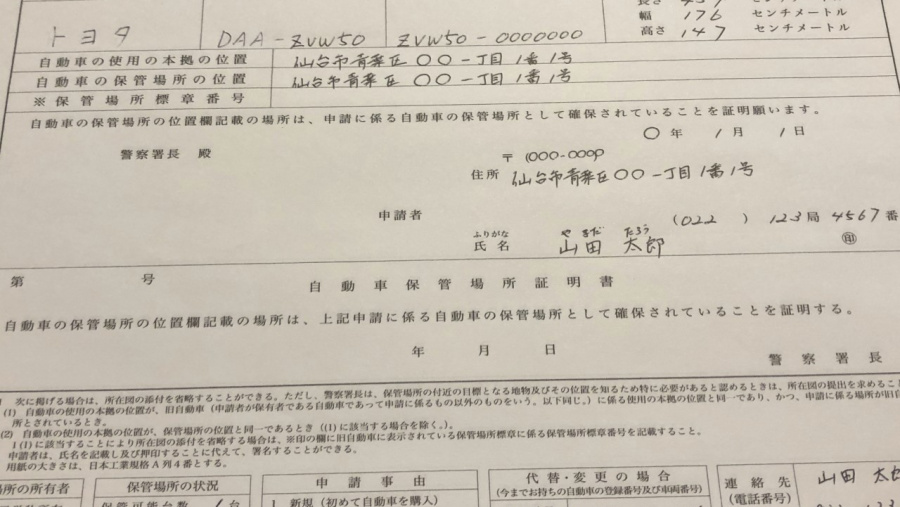 長さ 457 センチメートル
幅 176 センチメートル
高さ 147 センチメートル
トヨタ DAA-ZVW50 ZVW50-0000000
自動車の使用の本拠の位置 仙台市青葉区〇〇一丁目1番1号
自動車の保管場所の位置 仙台市青葉区〇〇一丁目1番1号
※保管場所標章番号
自動車の保管場所の位置欄記載の場所は、申請に係る自動車の保管場所として確保されていることを証明願います。
〇年 1月 1日
警察署長 殿
〒(000-0000)
住所 仙台市青葉区〇〇一丁目1番1号
申請者
(022) 123局 4567番
ふりがな やまだ たろう
氏名 山田 太郎 ㊞
第 号
自動車保管場所証明書
自動車の保管場所の位置欄記載の場所は、上記申請に係る自動車の保管場所として確保されていることを証明する。
年 月 日
警察署長
次に掲げる場合は、所在図の添付を省略することができる。ただし、警察署長は、保管場所の付近の目標となる地物及びその位置を知るため特に必要があると認めるときは、所在図の提出を求めること
(1) 自動車の使用の本拠の位置が、旧自動車(申請者が保有者である自動車であって申請に係るもの以外のものをいう。以下同じ。)に係る使用の本拠の位置と同一であり、かつ、申請に係る場所が旧自
所とされているとき。
(2) 自動車の使用の本拠の位置が、保管場所の位置と同一であるとき((1)に該当する場合を除く。)。
1(1)に該当することにより所在図の添付を省略する場合は、※印の欄に旧自動車に表示されている保管場所標章に係る保管場所標章番号を記載すること。
申請者は、氏名を記載し及び押印することに代えて、署名することができる。
用紙の大きさは、日本工業規格A列4番とする。
場所の所有者 保管場所の状況 申請事由 代替・変更の場合 連絡先 山田 太郎
(今までお持ちの自動車の登録番号及び車両番号) (電話番号)
保管可能台数 1台 1 新規(初めて自動車を購入)